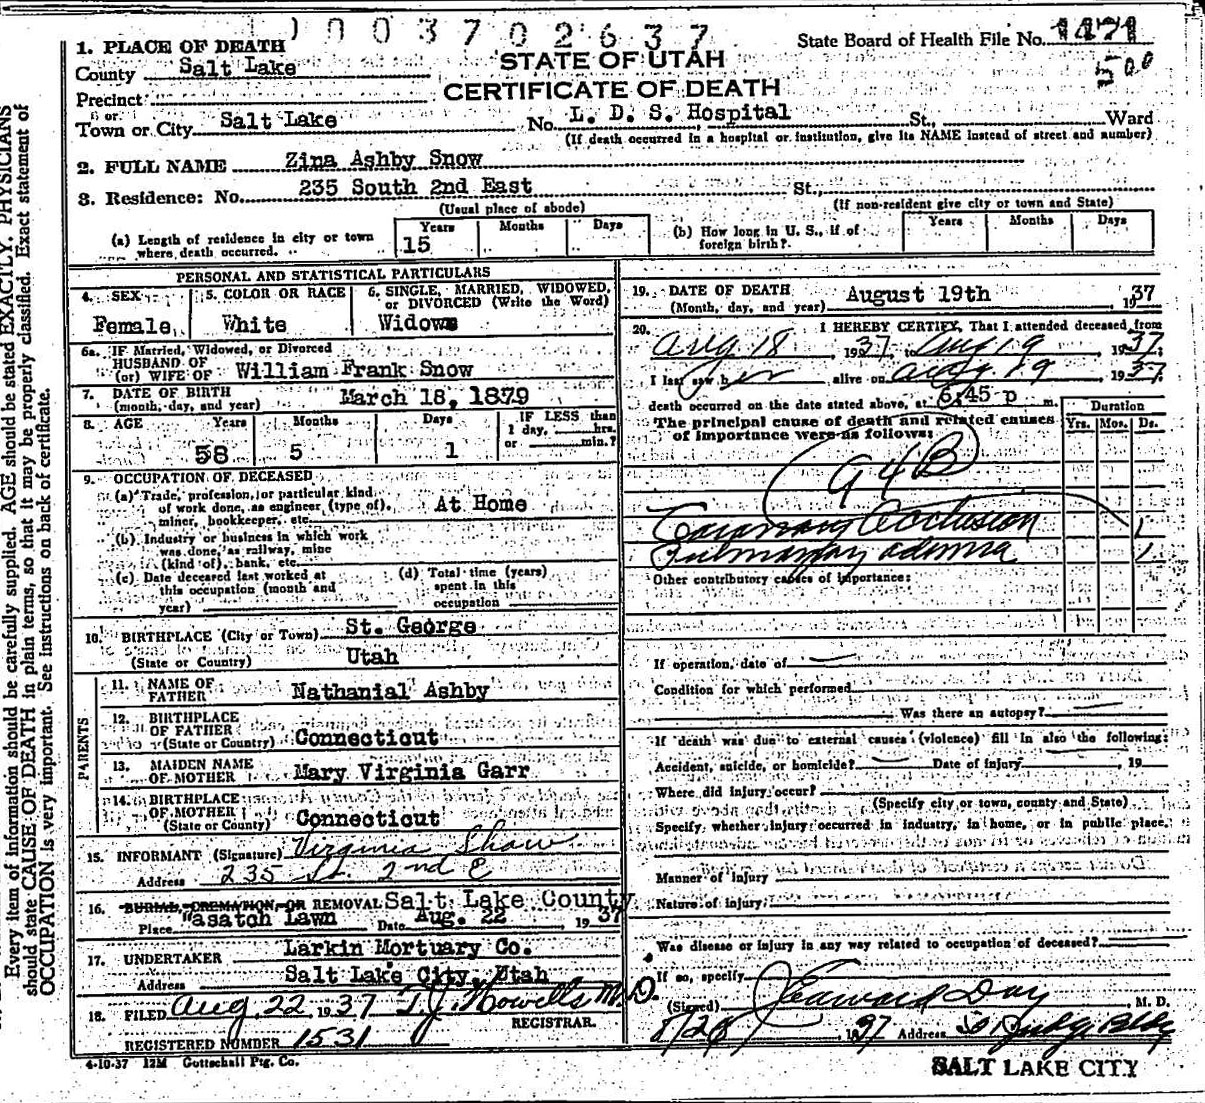 1003702637
State Board of Health File No. 1471
500
STATE OF UTAH
CERTIFICATE OF DEATH
1. PLACE OF DEATH
County Salt Lake
Precinct
or
Town or City Salt Lake No. L. D. S. Hospital St., Ward
(If death occurred in a hospital or institution, give its NAME instead of street and number)
2. FULL NAME Zina Ashby Snow
3. Residence: No. 235 South 2nd East St.,
(Usual place of abode) (If non-resident give city or town and State)
(a) Length of residence in city or town where death occurred. Years 15 Months Days
(b) How long in U. S., if of foreign birth? Years Months Days
PERSONAL AND STATISTICAL PARTICULARS
4. SEX Female
5. COLOR OR RACE White
6. SINGLE, MARRIED, WIDOWED, or DIVORCED (Write the Word)
Widow
6a. IF Married, Widowed, or Divorced
HUSBAND OF
(or) WIFE OF William Frank Snow
7. DATE OF BIRTH
(month, day, and year) March 18, 1879
8. AGE Years 58 Months 5 Days 1
IF LESS than
1 day, hrs.
or min.?
9. OCCUPATION OF DECEASED
(a) Trade, profession, or particular kind
of work done, as engineer (type of), At Home
miner, bookkeeper, etc.
(b) Industry or business in which work
was done, as railway, mine
(kind of), bank, etc.
(c) Date deceased last worked at
this occupation (month and
year)
(d) Total time (years)
spent in this
occupation
10. BIRTHPLACE (City or Town) St. George
(State or Country) Utah
PARENTS
11. NAME OF
FATHER Nathanial Ashby
12. BIRTHPLACE
OF FATHER
(State or Country) Connecticut
13. MAIDEN NAME
OF MOTHER Mary Virginia Garr
14. BIRTHPLACE
OF MOTHER
(State or Country) Connecticut
15. INFORMANT (Signature) Virginia Shaw
Address 235 So. 2nd E
16. BURIAL, CREMATION, OR REMOVAL Salt Lake County
Place Wasatch Lawn Date Aug. 22 1937
17. UNDERTAKER Larkin Mortuary Co.
Address Salt Lake City, Utah
18. FILED Aug. 22, 1937 T. J. Howells M. D.
REGISTRAR.
REGISTERED NUMBER 1531
4-10-37 12M Gottschall Ptg. Co.
19. DATE OF DEATH
(Month, day, and year) August 19th, 1937
20. I HEREBY CERTIFY, That I attended deceased from
Aug 18 1937, to Aug 19, 1937,
I last saw her alive on Aug 19, 1937
death occurred on the date stated above, at 6:45 p m.
The principal cause of death and related causes
of importance were as follows:
Duration
Yrs. Mos. Ds.
94B
Coronary Occlusion 1
Pulmonary edema 1
Other contributory causes of importance:
If operation, date of
Condition for which performed
Was there an autopsy?
If death was due to external causes (violence) fill in also the following:
Accident, suicide, or homicide? Date of injury , 19
Where did injury occur?
(Specify city or town, county and State)
Specify whether injury occurred in industry, in home, or in public place.
Manner of injury
Nature of injury
Was disease or injury in any way related to occupation of deceased?
If so, specify
(Signed) J Edward Day, M. D.
1937 Address Judge Bldg
SALT LAKE CITY
Every item of information should be carefully supplied. AGE should be stated EXACTLY. PHYSICIANS
should state CAUSE OF DEATH in plain terms, so that it may be properly classified. Exact statement of
OCCUPATION is very important. See instructions on back of certificate.